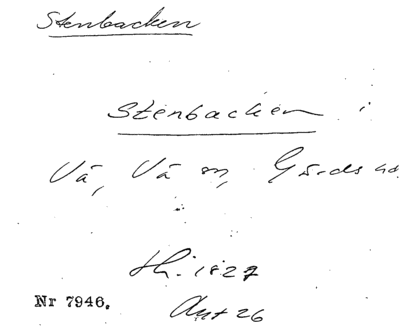 Stenbacken
Stenbacken i
Vä, Vä sn, Gärds hd.
th. 1827
Nr 7946.
Avt 26